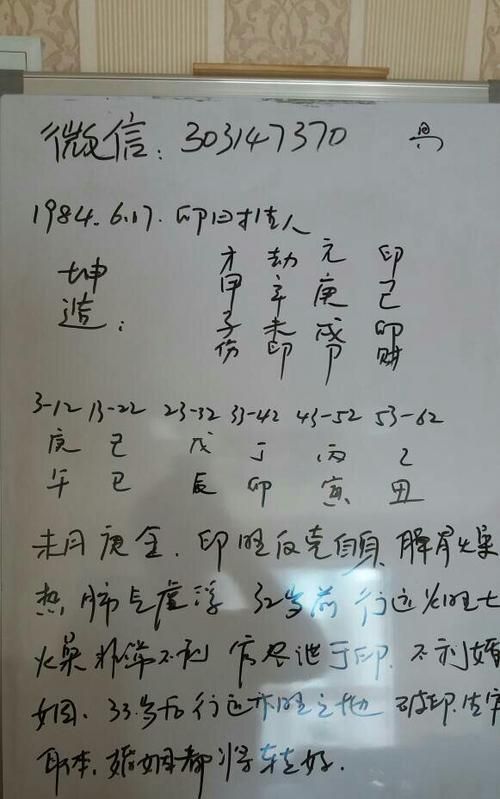 微信：303147370
1984.6.17. 卯时 女人
坤造：
才 劫 元 印
甲 辛 庚 己
子 未 戌 卯
伤 印 卩 财
3-12 13-22 23-32 33-42 43-52 53-62
庚 己 戊 丁 丙 乙
午 巳 辰 卯 寅 丑
未月庚金，印旺反克自身，脾胃燥
热肺气虚浮 32岁前行运火旺土
火燥 不利 官尽泄于印，不利婚
姻，33岁后行运木旺之地 破印生官
，婚姻都将转好．